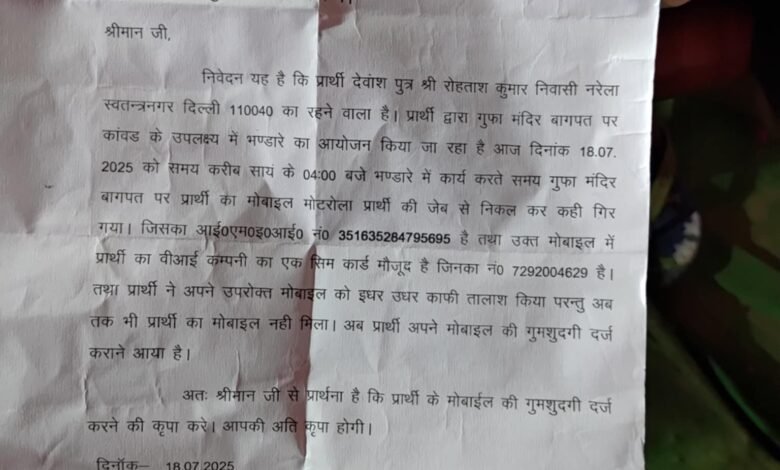 श्रीमान जी,
निवेदन यह है कि प्रार्थी देवांश पुत्र श्री रोहताश कुमार निवासी नरेला
स्वतन्त्रनगर दिल्ली 110040 का रहने वाला है। प्रार्थी द्वारा गुफा मंदिर बागपत पर
कांवड के उपलक्ष्य में भण्डारे का आयोजन किया जा रहा है आज दिनांक 18.07.
2025 को समय करीब सायं के 04:00 बजे भण्डारे में कार्य करते समय गुफा मंदिर
बागपत पर प्रार्थी का मोबाइल मोटरोला प्रार्थी की जेब से निकल कर कही गिर
गया। जिसका आई0एम0इ0आई0 नं0 351635284795695 है तथा उक्त मोबाइल में
प्रार्थी का वीआई कम्पनी का एक सिम कार्ड मौजूद है जिनका नं0 7292004629 है।
तथा प्रार्थी ने अपने उपरोक्त मोबाइल को इधर उधर काफी तालाश किया परन्तु अब
तक भी प्रार्थी का मोबाइल नही मिला। अब प्रार्थी अपने मोबाइल की गुमशुदगी दर्ज
कराने आया है।
अतः श्रीमान जी से प्रार्थना है कि प्रार्थी के मोबाईल की गुमशुदगी दर्ज
करने की कृपा करे। आपकी अति कृपा होगी।
दिनॉक– 18.07.2025